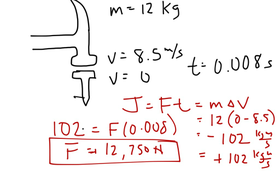 m = 12 kg
v = 8.5 m/s
v = 0
t = 0.008 s
J = Ft = m Δ V
= 12 (0 - 8.5)
= - 102 kg m/s
= + 102 kg m/s
102 = F (0.008)
F = 12,750 N